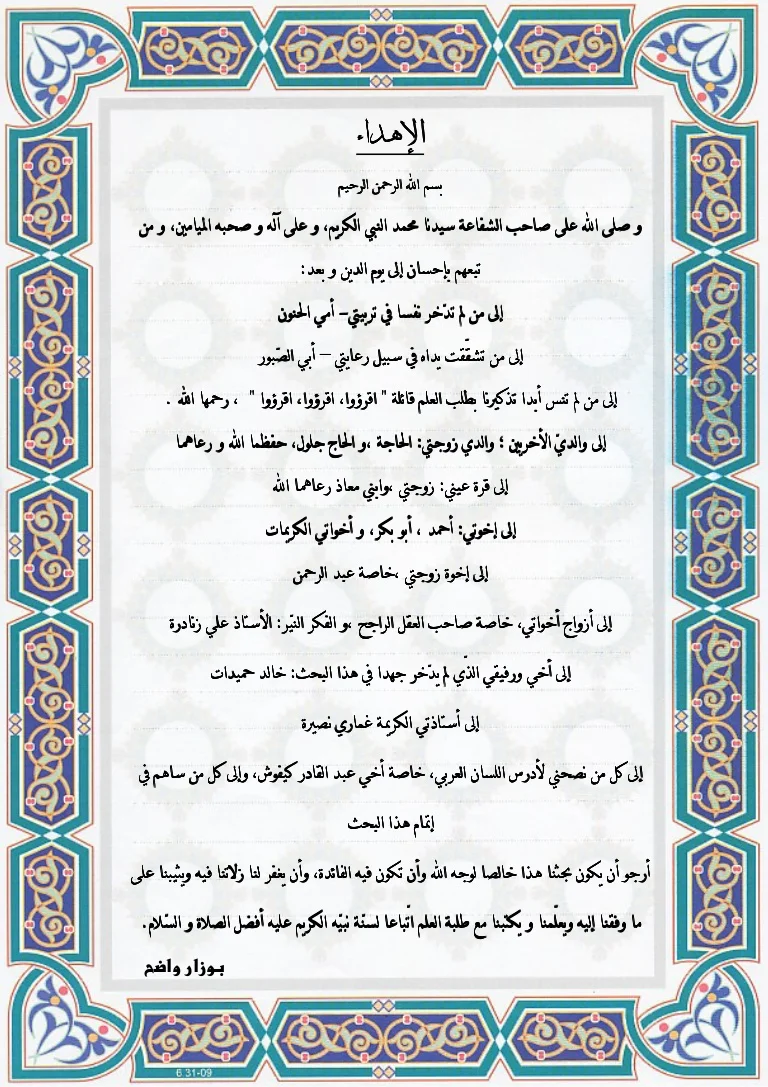 الإهداء
بسم الله الرحمن الرحيم
و صلى الله على صاحب الشفاعة سيدنا محمد النبي الكريم، و على آله و صحبه الميامين، و من
تبعهم بإحسان إلى يوم الدين و بعد :
إلى من لم تدّخر نفسا في تربيتي– أمي الحنون
إلى من تشقّقت يداه في سبيل رعايتي – أبي الصّبور
إلى من لم تنس أبدا تذكيرنا بطلب العلم قائلة " اقرؤوا، اقرؤوا، اقرؤوا " ، رحمها الله .
إلى والديّ الأخريين ؛ والدي زوجتي: الحاجة ،و الحاج جلول، حفظما الله و رعاهما
إلى قرة عيني: زوجتي ،وابني معاذ رعاهما الله
إلى إخوتي: أحمد ، أبو بكر، و أخواتي الكريمات
إلى إخوة زوجتي ،خاصة عبد الرحمن
إلى أزواج أخواتي، خاصة صاحب العقل الراجح ،و الفكر النيّر: الأستاذ علي زنادرة
إلى أخي ورفيقي الذّي لم يدّخر جهدا في هذا البحث: خالد حميدات
إلى أستاذتي الكريمة غماري نصيرة
إلى كل من نصحني لأدرس اللسان العربي، خاصة أخي عبد القادر كيفوش، وإلى كل من ساهم في
إتمام هذا البحث
أرجو أن يكون بحثنا هذا خالصا لوجه الله وأن تكون فيه الفائدة، وأن يغفر لنا زلاتنا فيه ويثيبنا على
ما وفقنا إليه ويعلّمنا و يكتبنا مع طلبة العلم اتّباعا لسنّة نبيّه الكريم عليه أفضل الصلاة و السّلام.
بوزار واضح
6 31-09